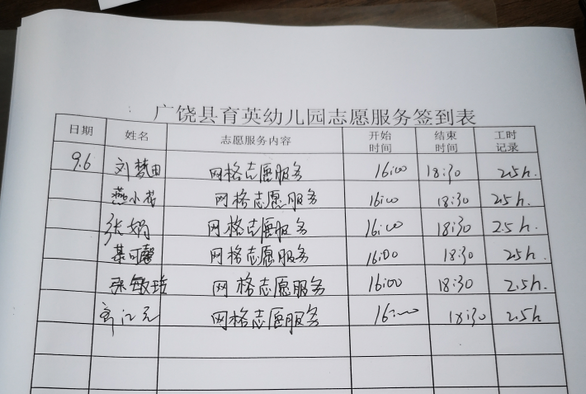 广饶县育英幼儿园志愿服务签到表
日期 姓名 志愿服务内容 开始时间 结束时间 工时记录
9.6 刘梦田 网格志愿服务 16:00 18:30 2.5h
燕小花 网格志愿服务 16:00 18:30 2.5h
张娟 网格志愿服务 16:00 18:30 2.5h
网格志愿服务 16:00 18:30 2.5h.
张敏 网格志愿服务 16:00 18:30 2.5h.
网格志愿服务 16:00 18:30 2.5h